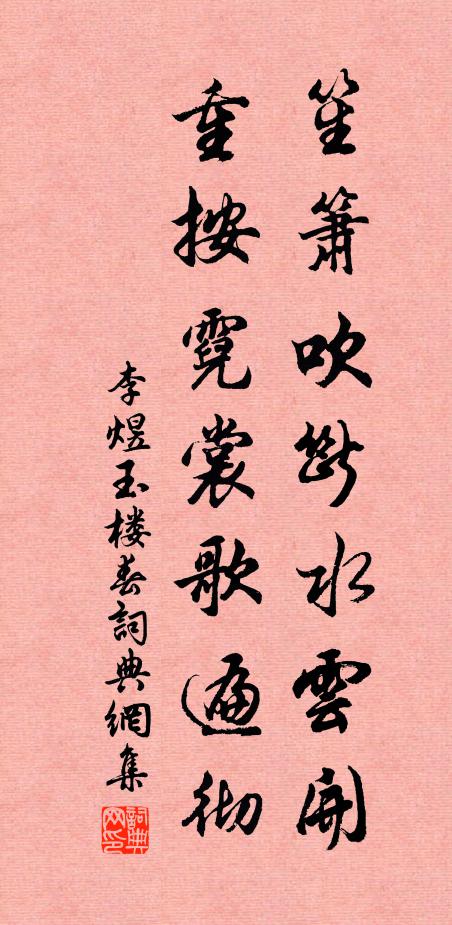 笙簫吹斷水雲開
重按霓裳歌遍彻
李煜玉楼春詞典網集
詞典网印